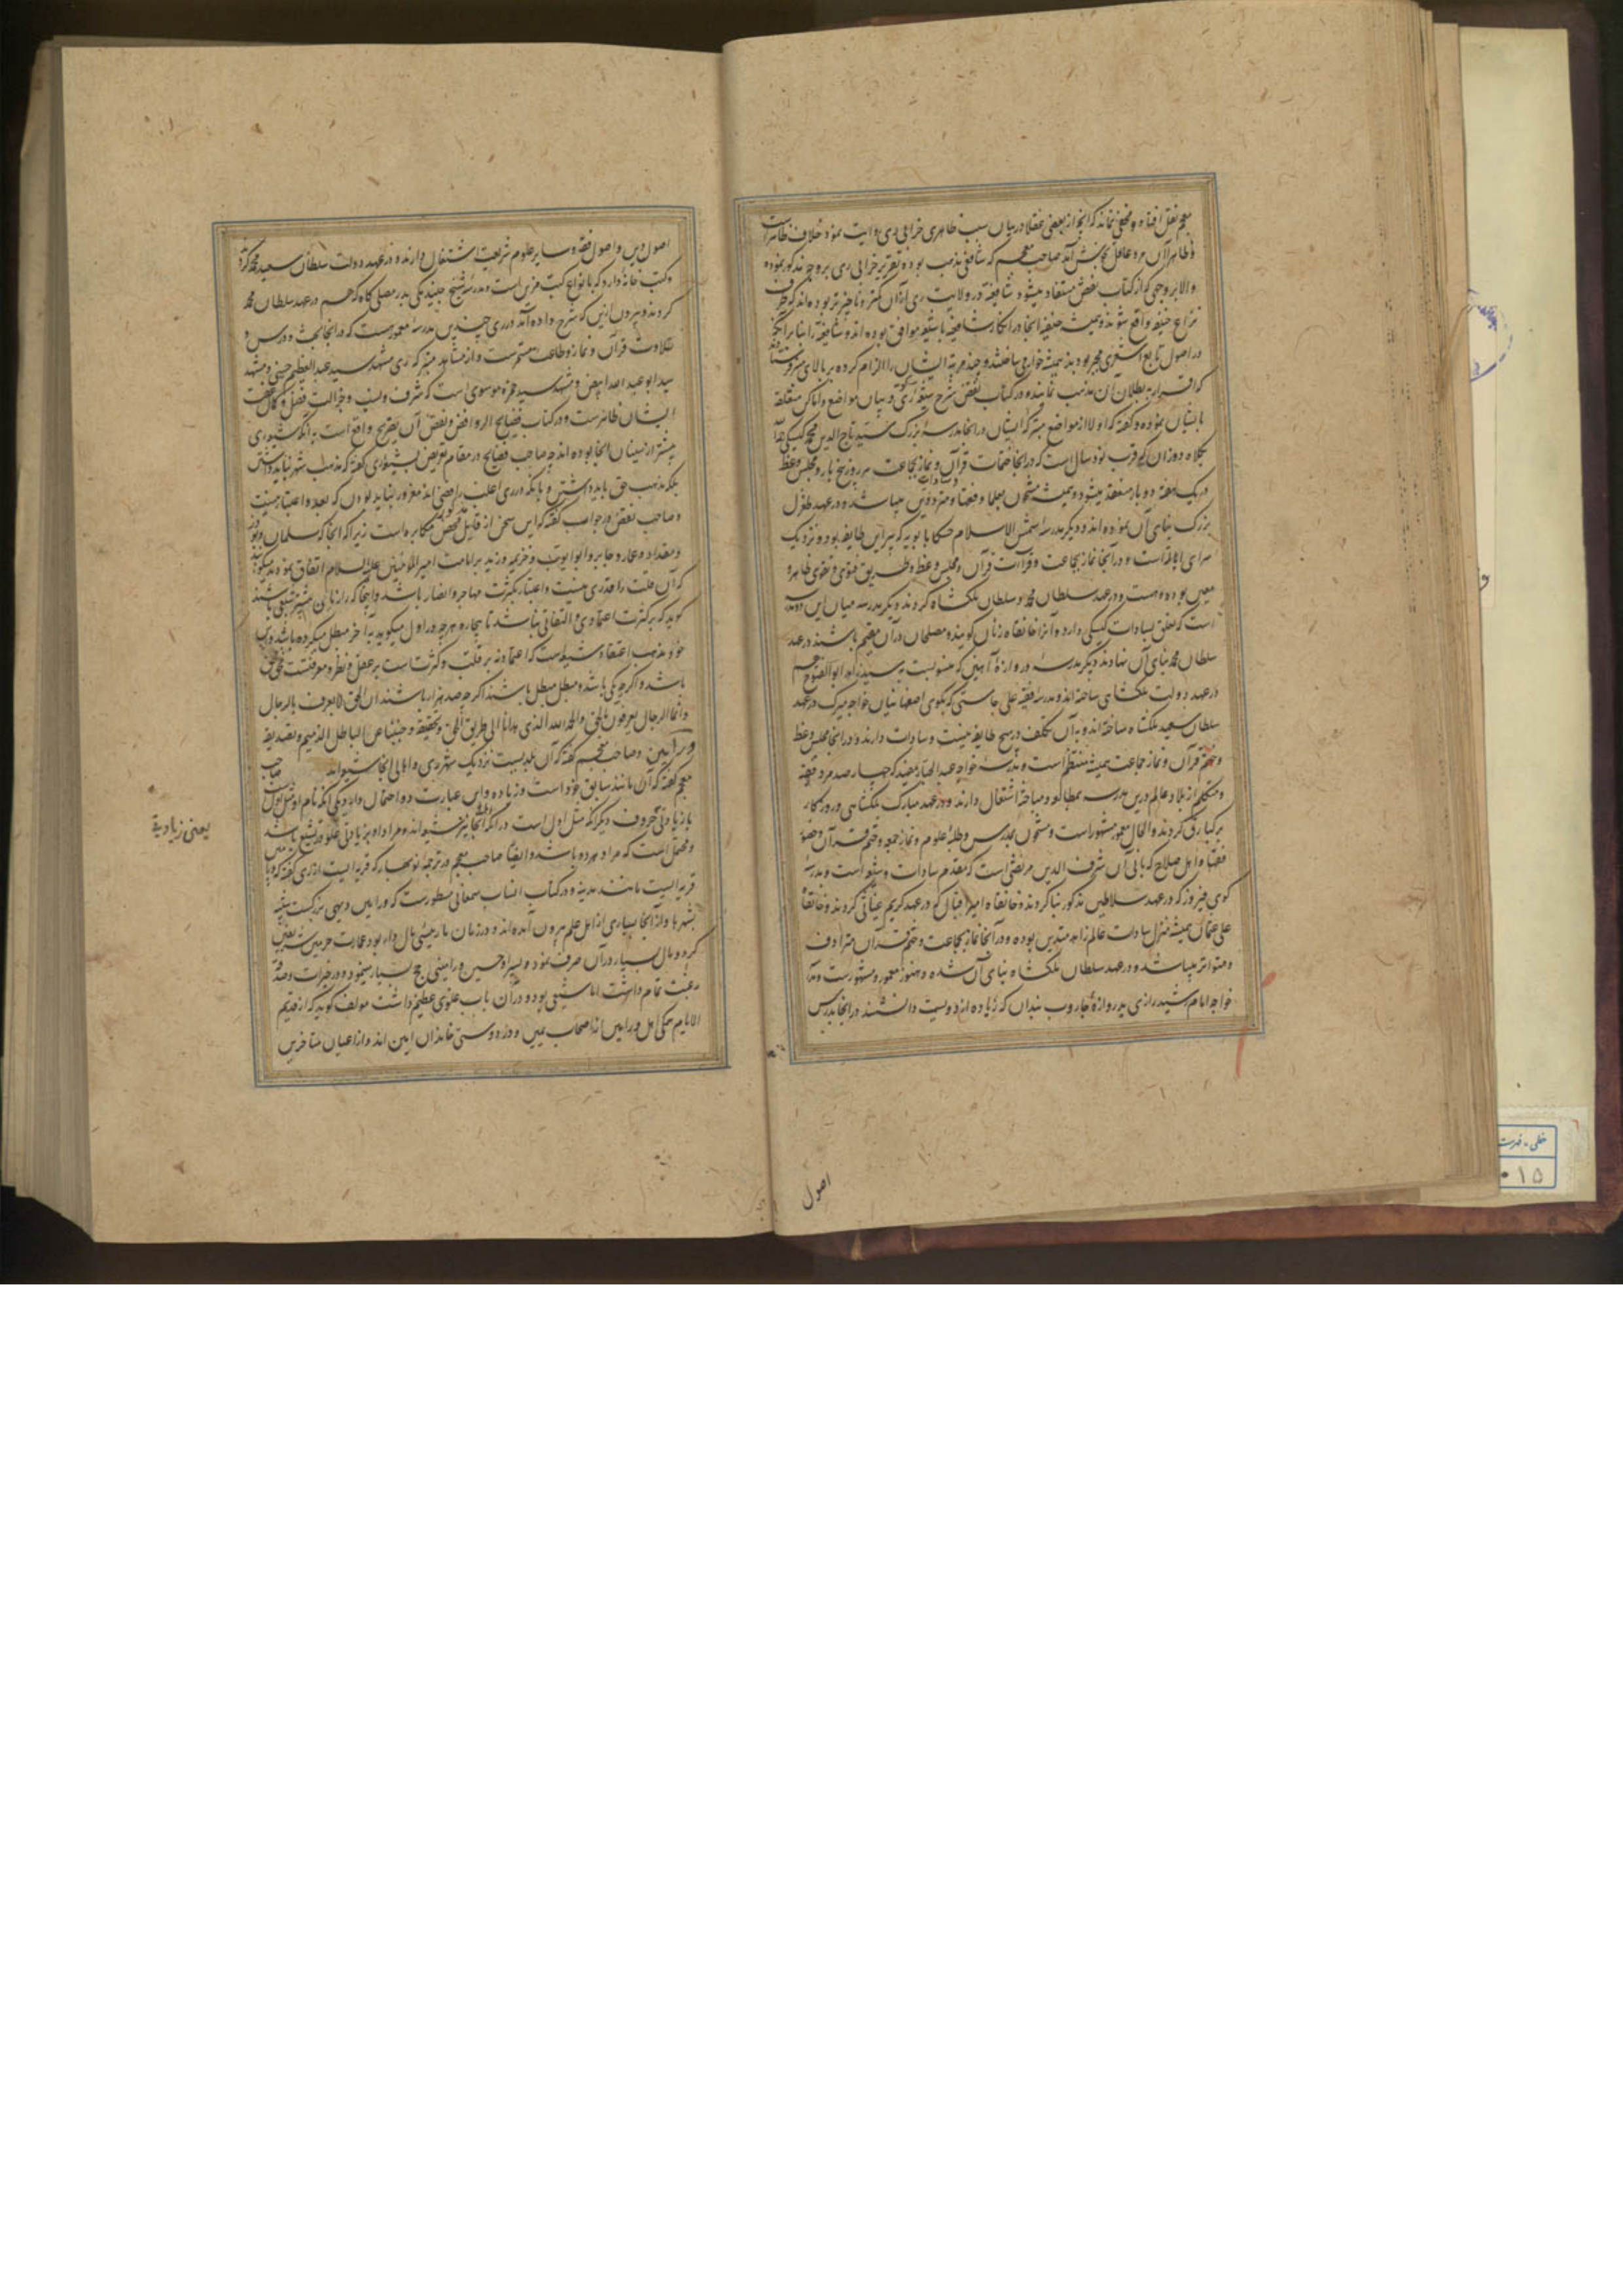 معجم نقل افتاد و مخفی نماند که آنچه از بعضی عقلا در بیان سبب ظاهری خرابی ری روایت نموده خلاف ظاهر است
و ظاهرا آن مرد عاقل بخانش آمد صاحب معجم که شافعی مذهب بوده تقریر خرابی ری بر وجه مذکور نموده
والا بر وجهی که از کتاب نقض مستفاد میشود شافعیه در ولایت ری از آن کمتر و ناچیزتر بوده‌اند که حرف
نزاع حنفیه واقع شوند و همیشه حنفیه آنجا در انکار شافعیه با شیعه موافق بوده‌اند و شافعیه را بنابر آنکه
در اصول تابع اشعری مجبر بودند همیشه خوار می‌ساختند و چند مرتبه ایشان را الزام کرده بر بالای منبر فرستاده‌اند
که اقرار به بطلان آن مذهب نمایند و در کتاب نقض شرح شیعه ری و بیان مواضع و اماکن متعلقه
بایشان نموده و گفته که اولا از مواضع متبرکه ایشان در آنجا مدرسه بزرگ سید تاج الدین محمد کیسکی است
بکلاه دوزان که قرب نود سال است که در آنجا ختمات قرآن و نماز بجماعت هر روز پنج بار و مجلس وعظ
در یک هفته دو بار منعقد میشود و همیشه مشحون بعلما و فقها و سادات و متردّدین میباشد و در عهد طغرل
بزرگ بنای آن نموده‌اند و دیگر مدرسه شمس الاسلام حسکا بابویه که پیر این طایفه بود و نزدیک
سرای ایالتست و در آنجا نماز بجماعت و قراآت قرآن و مجلس وعظ و طریق فتوی و تقوی ظاهر و
معین بوده و هست و در عهد سلطان محمد و سلطان ملکشاه کردند و دیگر مدرسه میان این دو مدرسه
است که تعلق بسادات کیسکی دارد و آنرا خانقاه زنان گویند و مصلحان در آن مقیم باشند در عهد
سلطان محمد بنای آن نهادند دیگر مدرسه دروازه آهنین که منسوبست به سید زاهد ابوالفتوح هم
در عهد دولت ملکشاهی ساخته‌اند و مدرسه فقیه علی جاستی که بکوی اصفهانیان خواجه میرک در عهد
سلطان سعید ملکشاه ساخته‌اند و بآن تکلف در هیچ طایفه نیست و سادات دارند و در آنجا مجلس وعظ
و ختم قرآن و نماز جماعت همیشه منتظم است و مدرسه خواجه عبدالجبار مفید که چهارصد مرد فقیه
و متکلم از بلاد عالم درین مدرسه بمطالعه و مباحثه اشتغال دارند و در عهد مبارک ملکشاهی و روزگار
برکیارق کردند و الحال معمور مشهور است و مشحون بدرس و طلبه علوم و نماز جمعه و ختم قرآن و حضور
فقها و اهل صلاح که بانی آن شرف الدین مرتضی است که مقدم سادات و شیعه است و مدرسه
کوی فیروز که در عهد سلاطین مذکور بنا کردند و خانقاه امیر اقبال که در عهد کریم غیاثی کردند و خانقاه
علی عثمان همیشه منزل سادات عالم زاهد متدین بوده و در آنجا نماز بجماعت و ختم قرآن مترادف
و متواتر میباشد و در عهد سلطان ملکشاه بنای آن شده و هنوز معمور و مشهور است و مدرسه
خواجه امام رشید رازی بدروازه جاروب بندان که زیاده از دویست دانشمند در آنجا بدرس
اصول
اصول دین و اصول فقه و سایر علوم شریعت اشتغال دارند و در عهد دولت سلطان سعید محمد کرده
و کتب خانه دارد که بانواع کتب مزین است و مدرسه شیخ حیدر مکی بدر مصلی گاه که هم در عهد سلطان محمد
کردند و بیرون ازین که شرح داده آمد در ری چندین مدرسه معمور هست که در آنجا بحث و درس و
تلاوت قرآن و نماز و طاعت مستمرست و از مشاهد متبرکه ری مشهد سید عبدالعظیم حسنی و مشهد
سید ابوعبدالله ابیض و مشهد سید حمزه موسوی است که شرف و نسب و جزالت فضل و کمال عفت
ایشان ظاهرست و در کتاب فضایح الروافض و نقض آن تصریح واقع است به آنکه شیعه ری
بیشتر از سنیان آنجا بوده‌اند چه صاحب فضایح در مقام تعریض بشیعه ری گفته که مذهب شهر نباید داشتن
بلکه مذهب حق باید داشتن و بآنکه در ری اغلب رافضی‌اند مغرور نباید بودن که بعدد اعتبار نیست
و صاحب نقض در جواب گفته که این سخن از قایل محض مکابره است زیرا که آنجا که سلمان و بوذر
و مقداد و عمار و جابر و ابوایوب و خزیمه و زید بر امامت امیرالمؤمنین علیه السلام اتفاق نمودند میگوید
که آن قلت را قدری نیست و اعتبار بکثرت مهاجر و انصار باشد و اینجا که رازیان بیشتر شیعی باشند
گوید که بر کثرت اعتمادی و التفاتی نباشد تا بیچاره هر چه در اول میگوید به آخر مبطل میکرده باشد و
خود مذهب اعتقاد شیعه است که اعتماد نه بر قلت و کثرت است بر عقل و نظر و معرفتست محق محق
باشد و اگر چه یکی باشد و مبطل مبطل باشد اگر چه صد هزار باشند ان الحق لا یعرف بالرجال
و انما الرجال یعرفون بالحق و الحمد لله الذی هدانا الی طریق الحق و تحقیقه و جنبنا عن الباطل الذمیم و تصدیقه
ورامین و صاحب معجم گفته که آن بلدیست نزدیک بشهر ری و اهالی آنجا شیعه‌اند صاحب
معجم گفته که آن مانند سابق خود است و زیاده و این عبارت دو احتمال دارد یکی آنکه نام او مثل اول است
با زیادتی حروف دیگر آنکه مثل اول است در آنکه اهل آنجا نیز شیعه‌اند و مراد او بزیادتی غلو در تشیع باشد
و محتمل است که مراد هر دو باشد و ایضا صاحب معجم در ترجمه نوبهار که قریه ایست از ری گفته که ورامین
قریه ایست مانند مدینه و در کتاب انساب سمعانی مسطور است که ورامین دیهی بزرگست شبیه
بشهرها و از آنجا بسیاری از اهل علم بیرون آمده‌اند و در زمان ما رئیسی مال دار بود عمارت حرمین شریفین
کرد و مال بسیار در آن صرف نمود و پسر او حسین ورامینی حج بسیار مینمود و در خیرات و صدقه
رغبت تمام داشت اما شیعی بود و در آن باب غلوی عظیم داشت مؤلف گوید که از قدیم
الایام همگی اهل ورامین از اصحاب یمین و در دوستی خاندان امین‌اند و از اعیان متاخرین
یعنی زیادیة
خطی - فهرست
۱۵